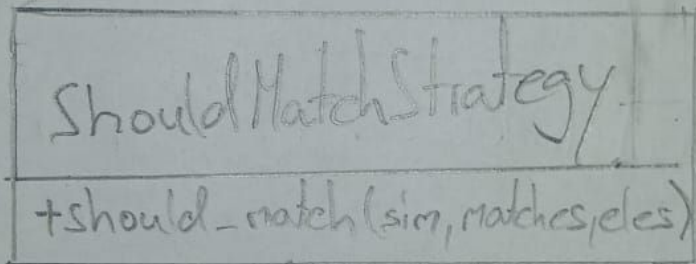 ShouldMatchStrategy
+should_match(sim, matches, eles)